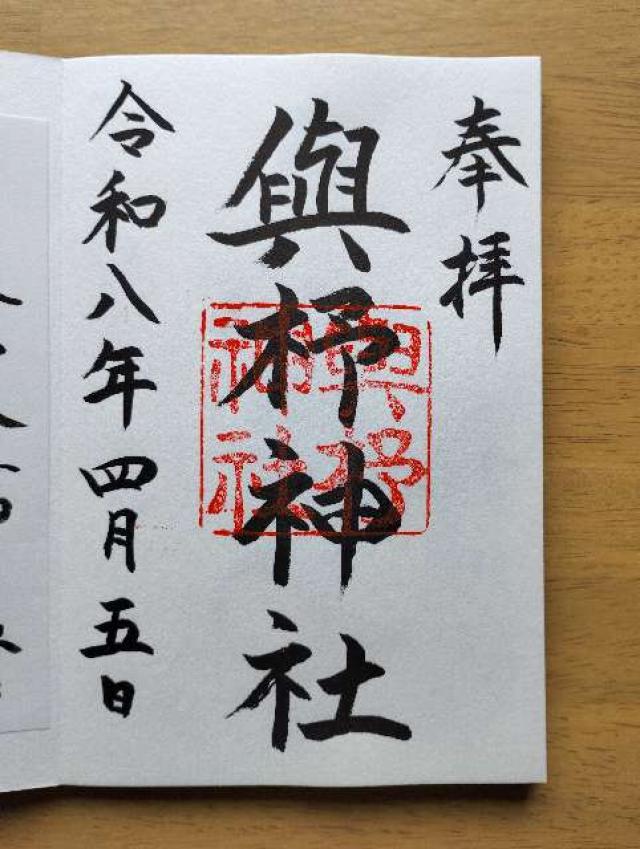 奉拝
與杼神社
與杼
神社
令和八年四月五日